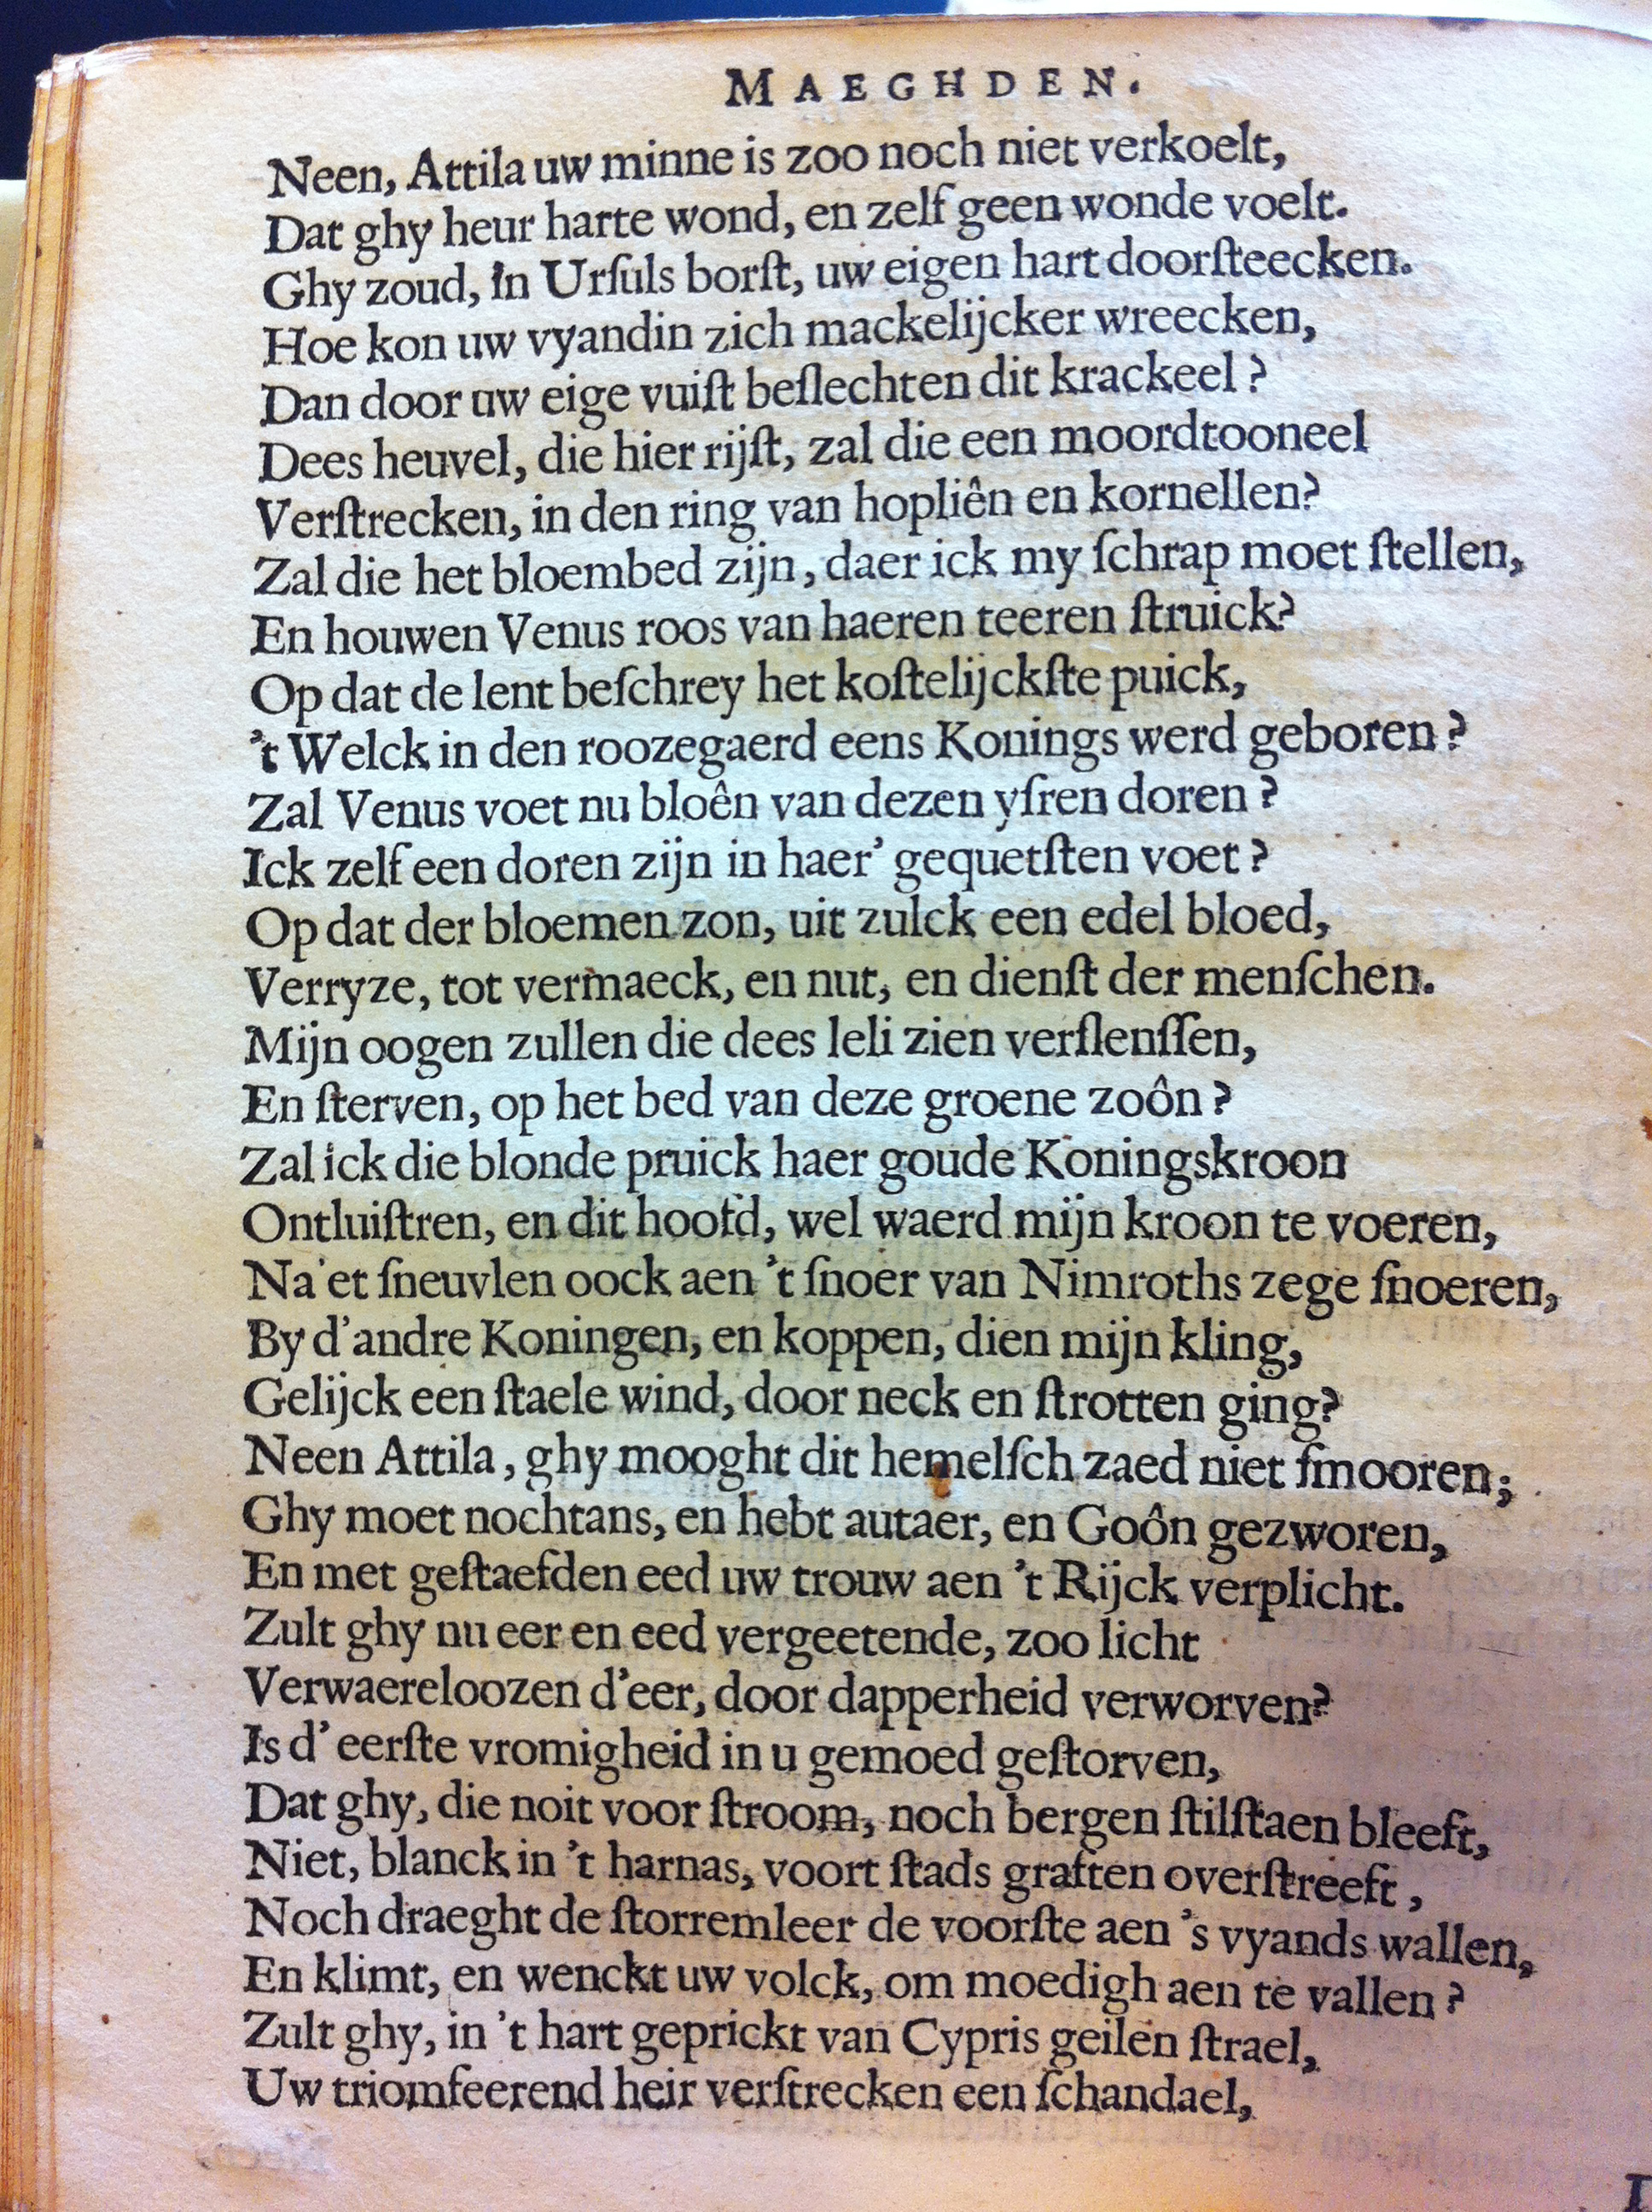 MAEGHDEN.
Neen, Attila uw minne is zoo noch niet verkoelt,
Dat ghy heur harte wond, en zelf geen wonde voelt.
Ghy zoud, in Urſuls borſt, uw eigen hart doorſteecken.
Hoe kon uw vyandin zich mackelijcker wreecken,
Dan door uw eige vuiſt beſlechten dit krackeel?
Dees heuvel, die hier rijſt, zal die een moordtooneel
Verſtrecken, in den ring van hopliên en kornellen?
Zal die het bloembed zijn, daer ick my ſchrap moet ſtellen,
En houwen Venus roos van haeren teeren ſtruick?
Op dat de lent beſchrey het koſtelijckſte puick,
't Welck in den roozegaerd eens Konings werd geboren?
Zal Venus voet nu bloên van dezen yſren doren?
Ick zelf een doren zijn in haer' gequetſten voet?
Op dat der bloemen zon, uit zulck een edel bloed,
Verryze, tot vermaeck, en nut, en dienſt der menſchen.
Mijn oogen zullen die dees leli zien verſlenſſen,
En ſterven, op het bed van deze groene zoôn?
Zal ick die blonde pruick haer goude Koningskroon
Ontluiſtren, en dit hoofd, wel waerd mijn kroon te voeren,
Na'et ſneuvlen oock aen 't ſnoer van Nimroths zege ſnoeren,
By d'andre Koningen, en koppen, dien mijn kling,
Gelijck een ſtaele wind, door neck en ſtrotten ging?
Neen Attila, ghy mooght dit hemelſch zaed niet ſmooren;
Ghy moet nochtans, en hebt autaer, en Goôn gezworen,
En met geſtaefden eed uw trouw aen 't Rijck verplicht.
Zult ghy nu eer en eed vergeetende, zoo licht
Verwaereloozen d'eer, door dapperheid verworven?
Is d' eerſte vromigheid in u gemoed geſtorven,
Dat ghy, die noit voor ſtroom, noch bergen ſtilſtaen bleeft,
Niet, blanck in 't harnas, voort ſtads graften overſtreeft,
Noch draeght de ſtorremleer de voorſte aen 's vyands wallen,
En klimt, en wenckt uw volck, om moedigh aen te vallen?
Zult ghy, in 't hart geprickt van Cypris geilen ſtrael,
Uw triomfeerend heir verſtrecken een ſchandael,